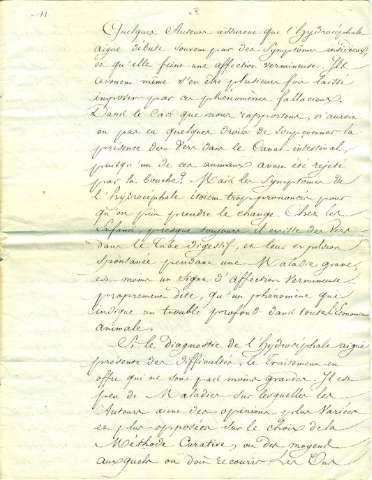 Quelques Auteurs assurent que l'hydrocéphale
aigue débute souvent par des symptômes
et qu'elle feint une affection vermineuse. Ils
avouent même s'en être plusieurs fois laissé
imposer par ce phénomène fallacieux
Dans le cas que nous rapportons, n'aurait
on pas eu quelques droits de soupçonner la
présence des Vers dans le Canal intestinal,
puisqu'un de ces animaux avait été rejeté
par la bouche? Mais les symptômes de
l'hydrocéphale étoient trop prononcés pour
qu'on put prendre le change. Chez les
Enfans, presque toujours il existe des Vers
dans le tube digestif, et leur expulsion
spontanée pendant une Maladie grave,
est moins un signe d'affection vermineuse
proprement dite, qu'un phénomène qui
indique un trouble profond dans toute l'Economie
animale.
Si le Diagnostic de l'hydrocéphale aiguë
présente des difficultés, le Traitement en
offre qui ne sont pas moins grandes. Il est
peu de Maladies sur lesquelles les
Auteurs aient des opinions plus variées
et plus opposées sur le choix de la
Méthode Curative, ou des moyens
auxquels on doit recourir. Les Uns